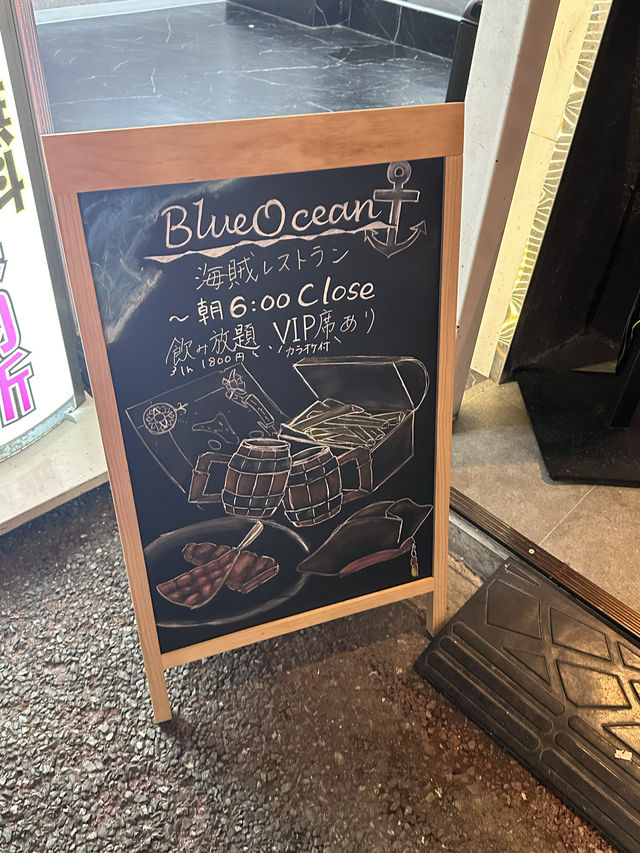 BlueOcean
海賊レストラン
～朝6:00 Close
飲み放題 VIP席あり
1h 1800円～ カラオケ付